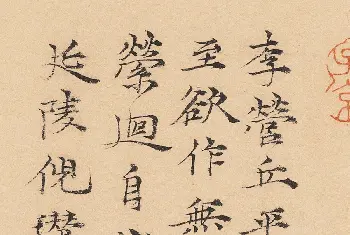 李營丘平
至欲作無
縈迴自
延陵倪瓚